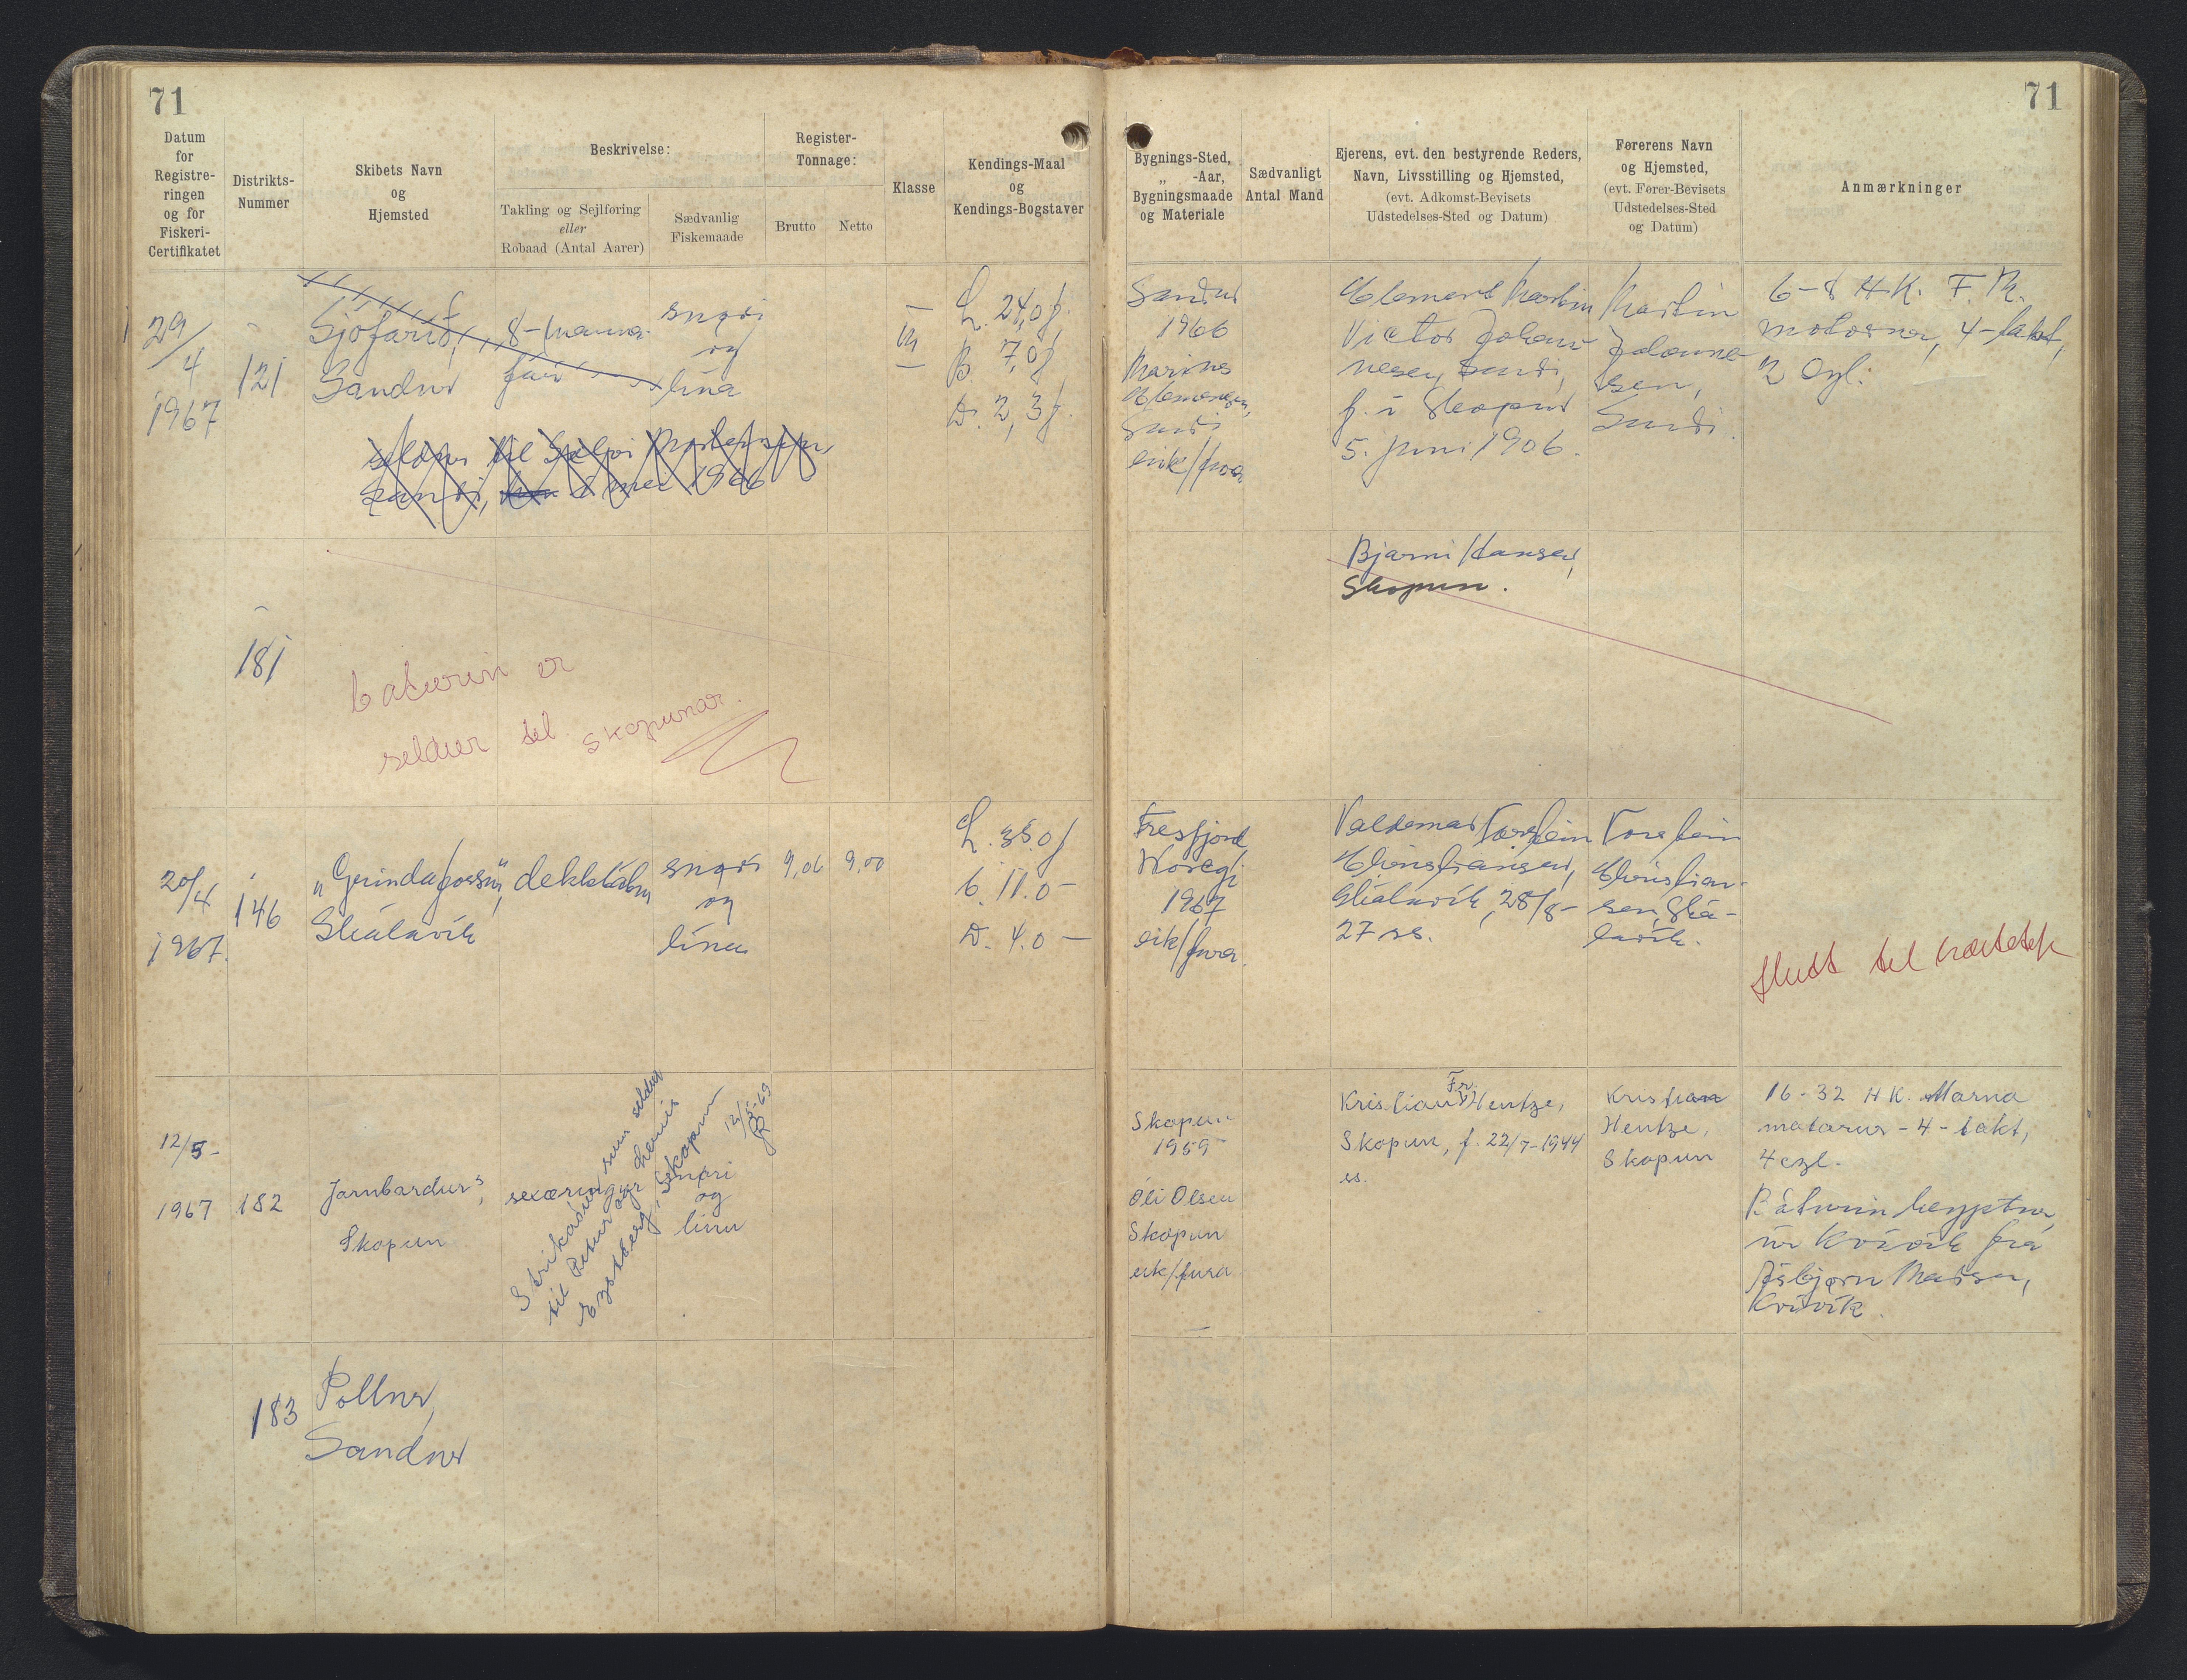 71
71
Datum
for
Registre-
ringen
og for
Fiskeri-
Certifikatet
Distrikts-
Nummer
Skibets Navn
og
Hjemsted
Beskrivelse:
Takling og Sejlføring
eller
Robaad (Antal Aarer)
Sædvanlig
Fiskemaade
Register-
Tonnage:
Brutto
Netto
Klasse
Kendings-Maal
og
Kendings-Bogstaver
Bygnings-Sted,
„ -Aar,
Bygningsmaade
og Materiale
Sædvanligt
Antal Mand
Ejerens, evt. den bestyrende Reders,
Navn, Livsstilling og Hjemsted,
(evt. Adkomst-Bevisets
Udstedelses-Sted og Datum)
Førerens Navn
og Hjemsted,
(evt. Fører-Bevisets
Udstedelses-Sted
og Datum)
Anmærkninger
29/
4
1967
121
Sjófarið,
Sandur
8-manna-
far
snøri
og
lína
L. 24,0 f.
B. 7,0 f
D. 2,3 f.
seldur til
Sandi, 1966
Sandur
1966
Marius
Sandi
eik/fura
Klement Martin
Victor Johan-
nesen, Sandi,
f. í Skopun
5. juni 1906.
Martin
Johanne-
sen,
Sandi.
6-8 H.K. F.M.
motorur, 4-takt,
2 cyl.
181
báturin er
seldur til skopunar.
Bjarni Hansen,
Skopun.
20/4
1967.
146
"Grindafossur",
Skálavík
dekkbátur
snøri
og
línu
9,06
9,00
L. 35.0 f
b. 11.0 -
D. 4.0 -
Fresfjord
Noregi
1967
eik/fura.
Valdemar Torstein
Christiansen,
Skálavík, 28/8-
27 ss.
Torstein
Christian-
sen, Ská-
lavík.
flutt til
12/5-
1967
182
Jarnbardur,
Skopun
sexæringur
snøri
og
línu
Strikaður sum seldur
til Petur og
Eystberg, Skopun
12/5-69
Skopun
1959
Óli Olsen
Skopun
eik/fura
Kristian Fr. Hentze,
Skopun, f. 22/7-1944
ss.
Kristian
Hentze,
Skopun
16-32 H K. Marna
motorur - 4 - takt,
4 cyl.
Báturin keyptur
úr Kvívík frá
Ásbjørn
Kvívík.
183
Pollur,
Sandur